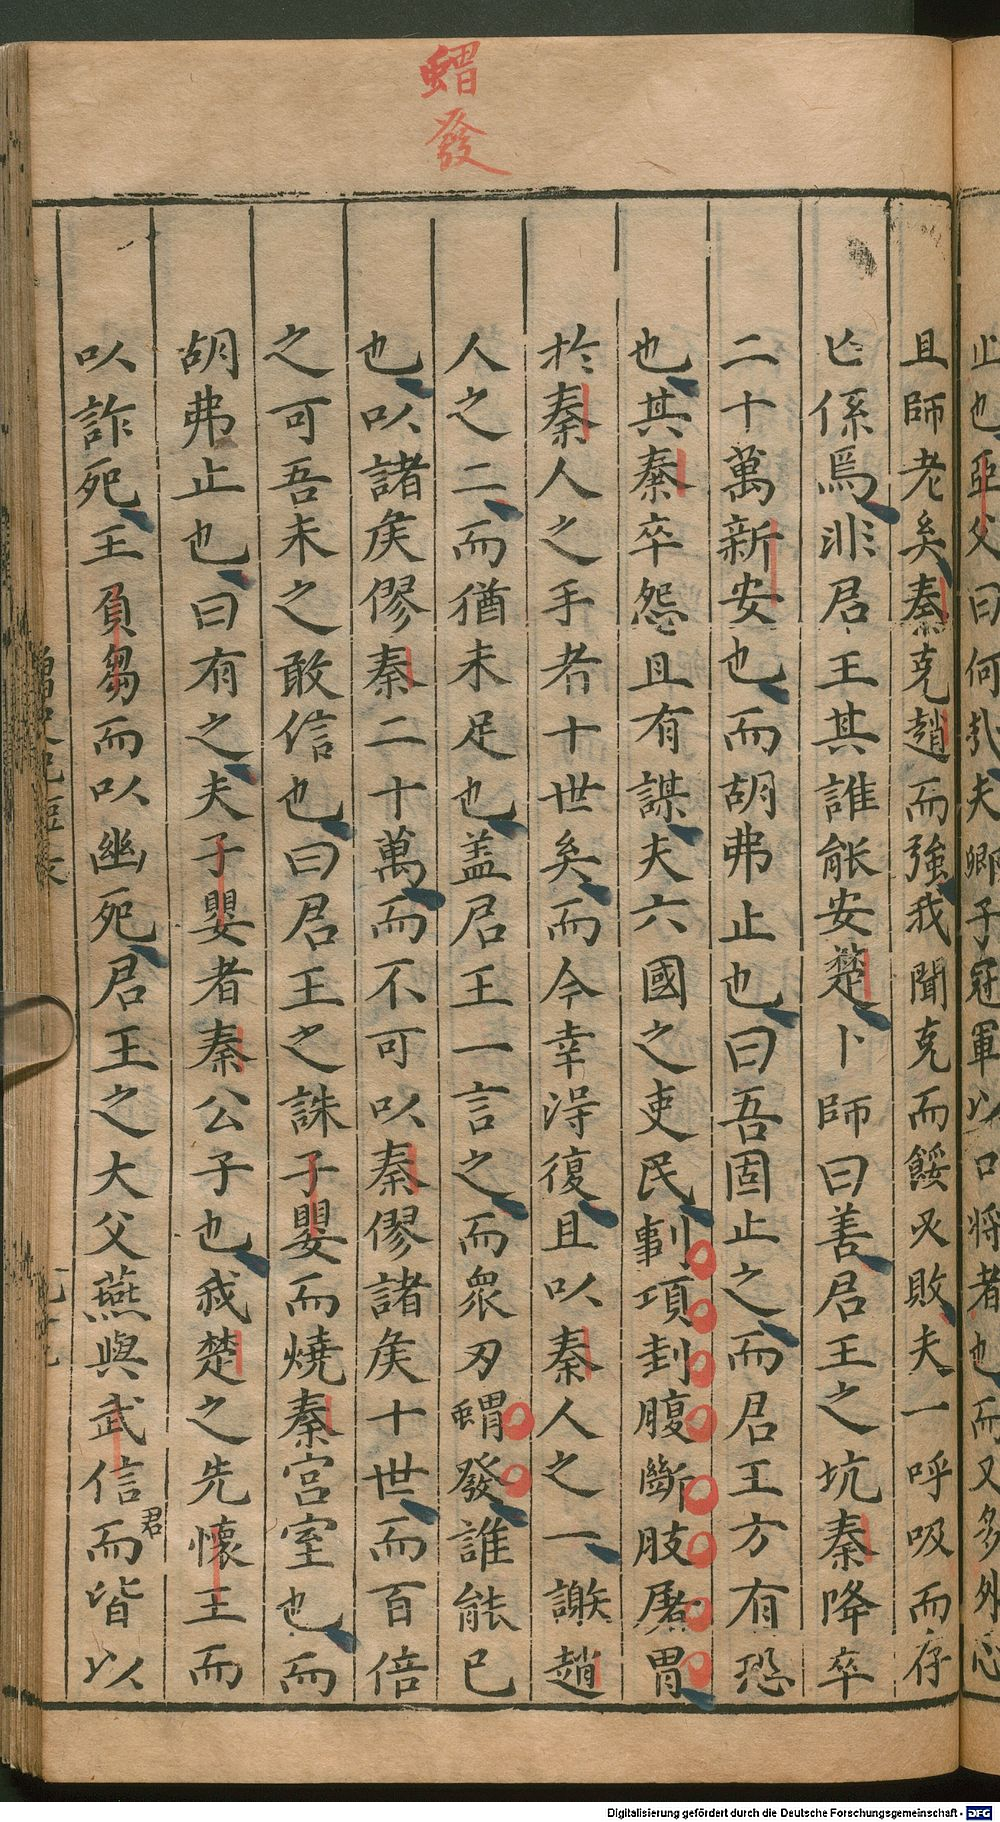 蝟發
止也亞父曰何哉夫卿子冠軍以口将者也而又多外心
且師老矣秦克趙而強我聞克而餒又敗夫一呼吸而存
亡係焉非君王其誰能安楚卜師曰善君王之坑秦降卒
二十萬新安也而胡弗止也曰吾固止之而君王方有恐
也其秦卒怨且有謀夫六國之吏民剚項刲腹斷肢屠胃
扵秦人之手者十世矣而今幸淂復且以秦人之一謝趙
人之二而猶未足也盖君王一言之而衆刃蝟發誰能已
也以諸矦僇秦二十萬而不可以秦僇諸矦十世而百倍
之可吾未之敢信也曰君王之誅子嬰而燒秦宮室也而
胡弗止也曰有之夫子嬰者秦公子也我楚之先懷王而
以詐死王負芻而以幽死君王之大父燕與武信君而皆以
Digitalisierung gefördert durch die Deutsche Forschungsgemeinschaft - DFG